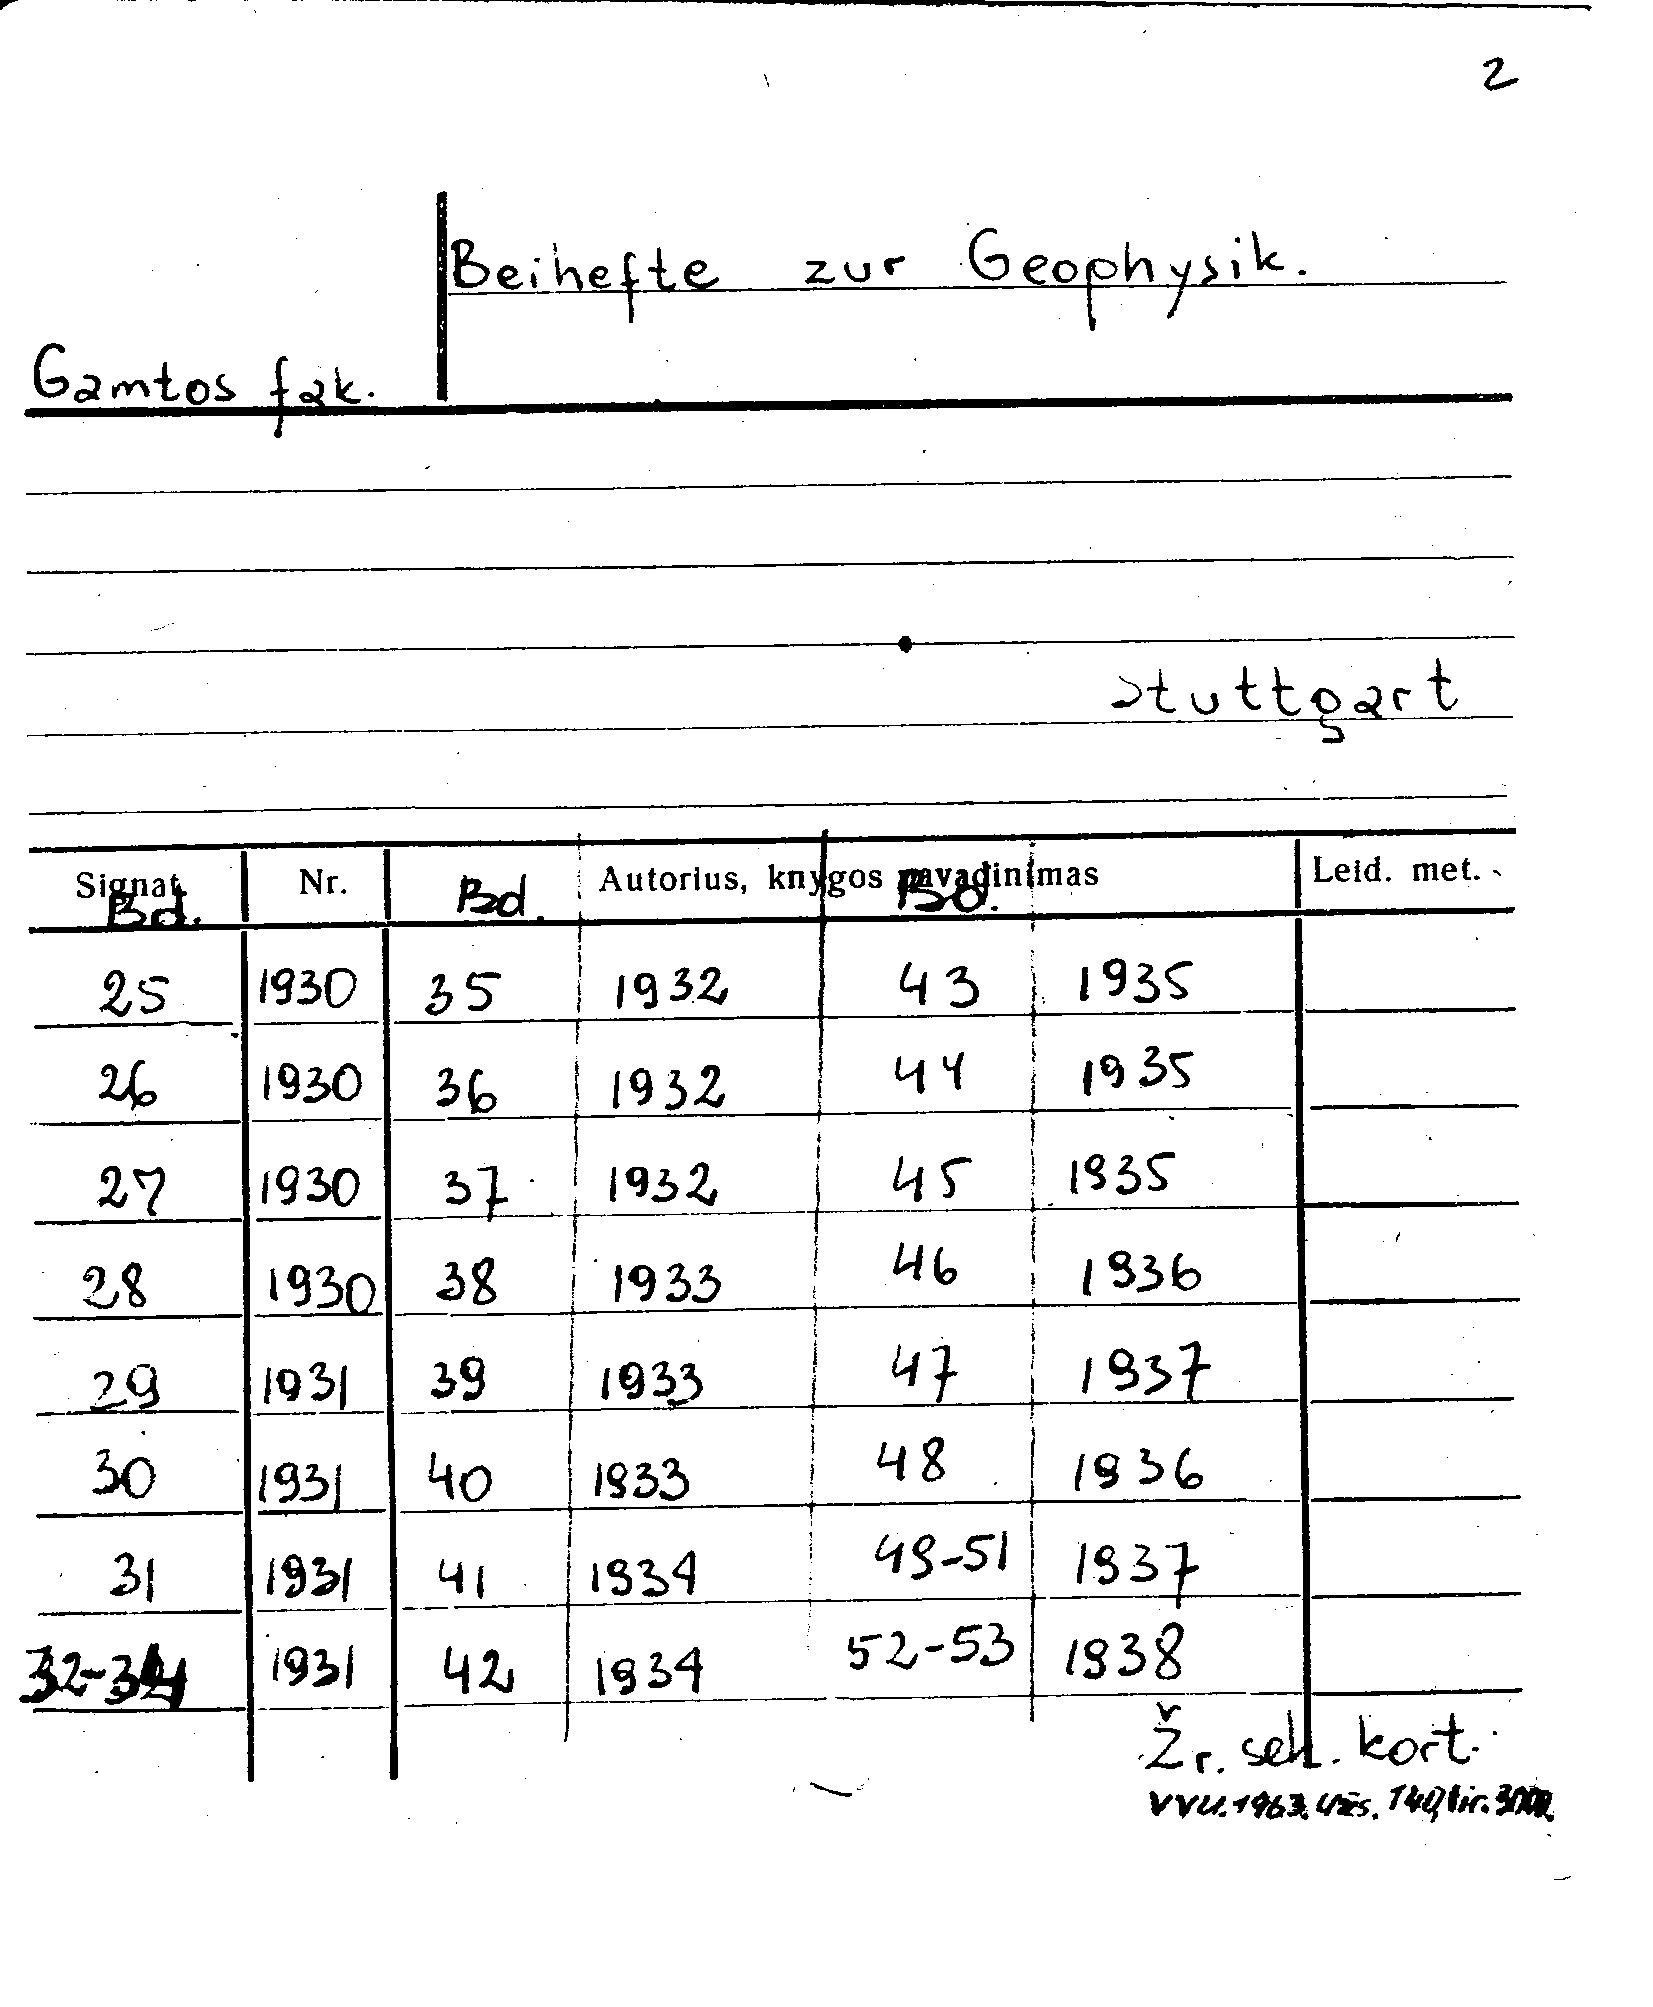 2
Beihefte zur Geophysik.
Gamtos fak.
Stuttgart
Signat. Nr. Autorius, knygos pavadinimas Leid. met.
Bd. Bd. Bd.
25 1930 35 1932 43 1935
26 1930 36 1932 44 1935
27 1930 37 1932 45 1935
28 1930 38 1933 46 1936
29 1931 39 1933 47 1937
30 1931 40 1933 48 1936
31 1931 41 1934 49-51 1937
32-34 1931 42 1934 52-53 1938
Žr. sek. kort.
VVU. 1963. Užs. 140, tir.